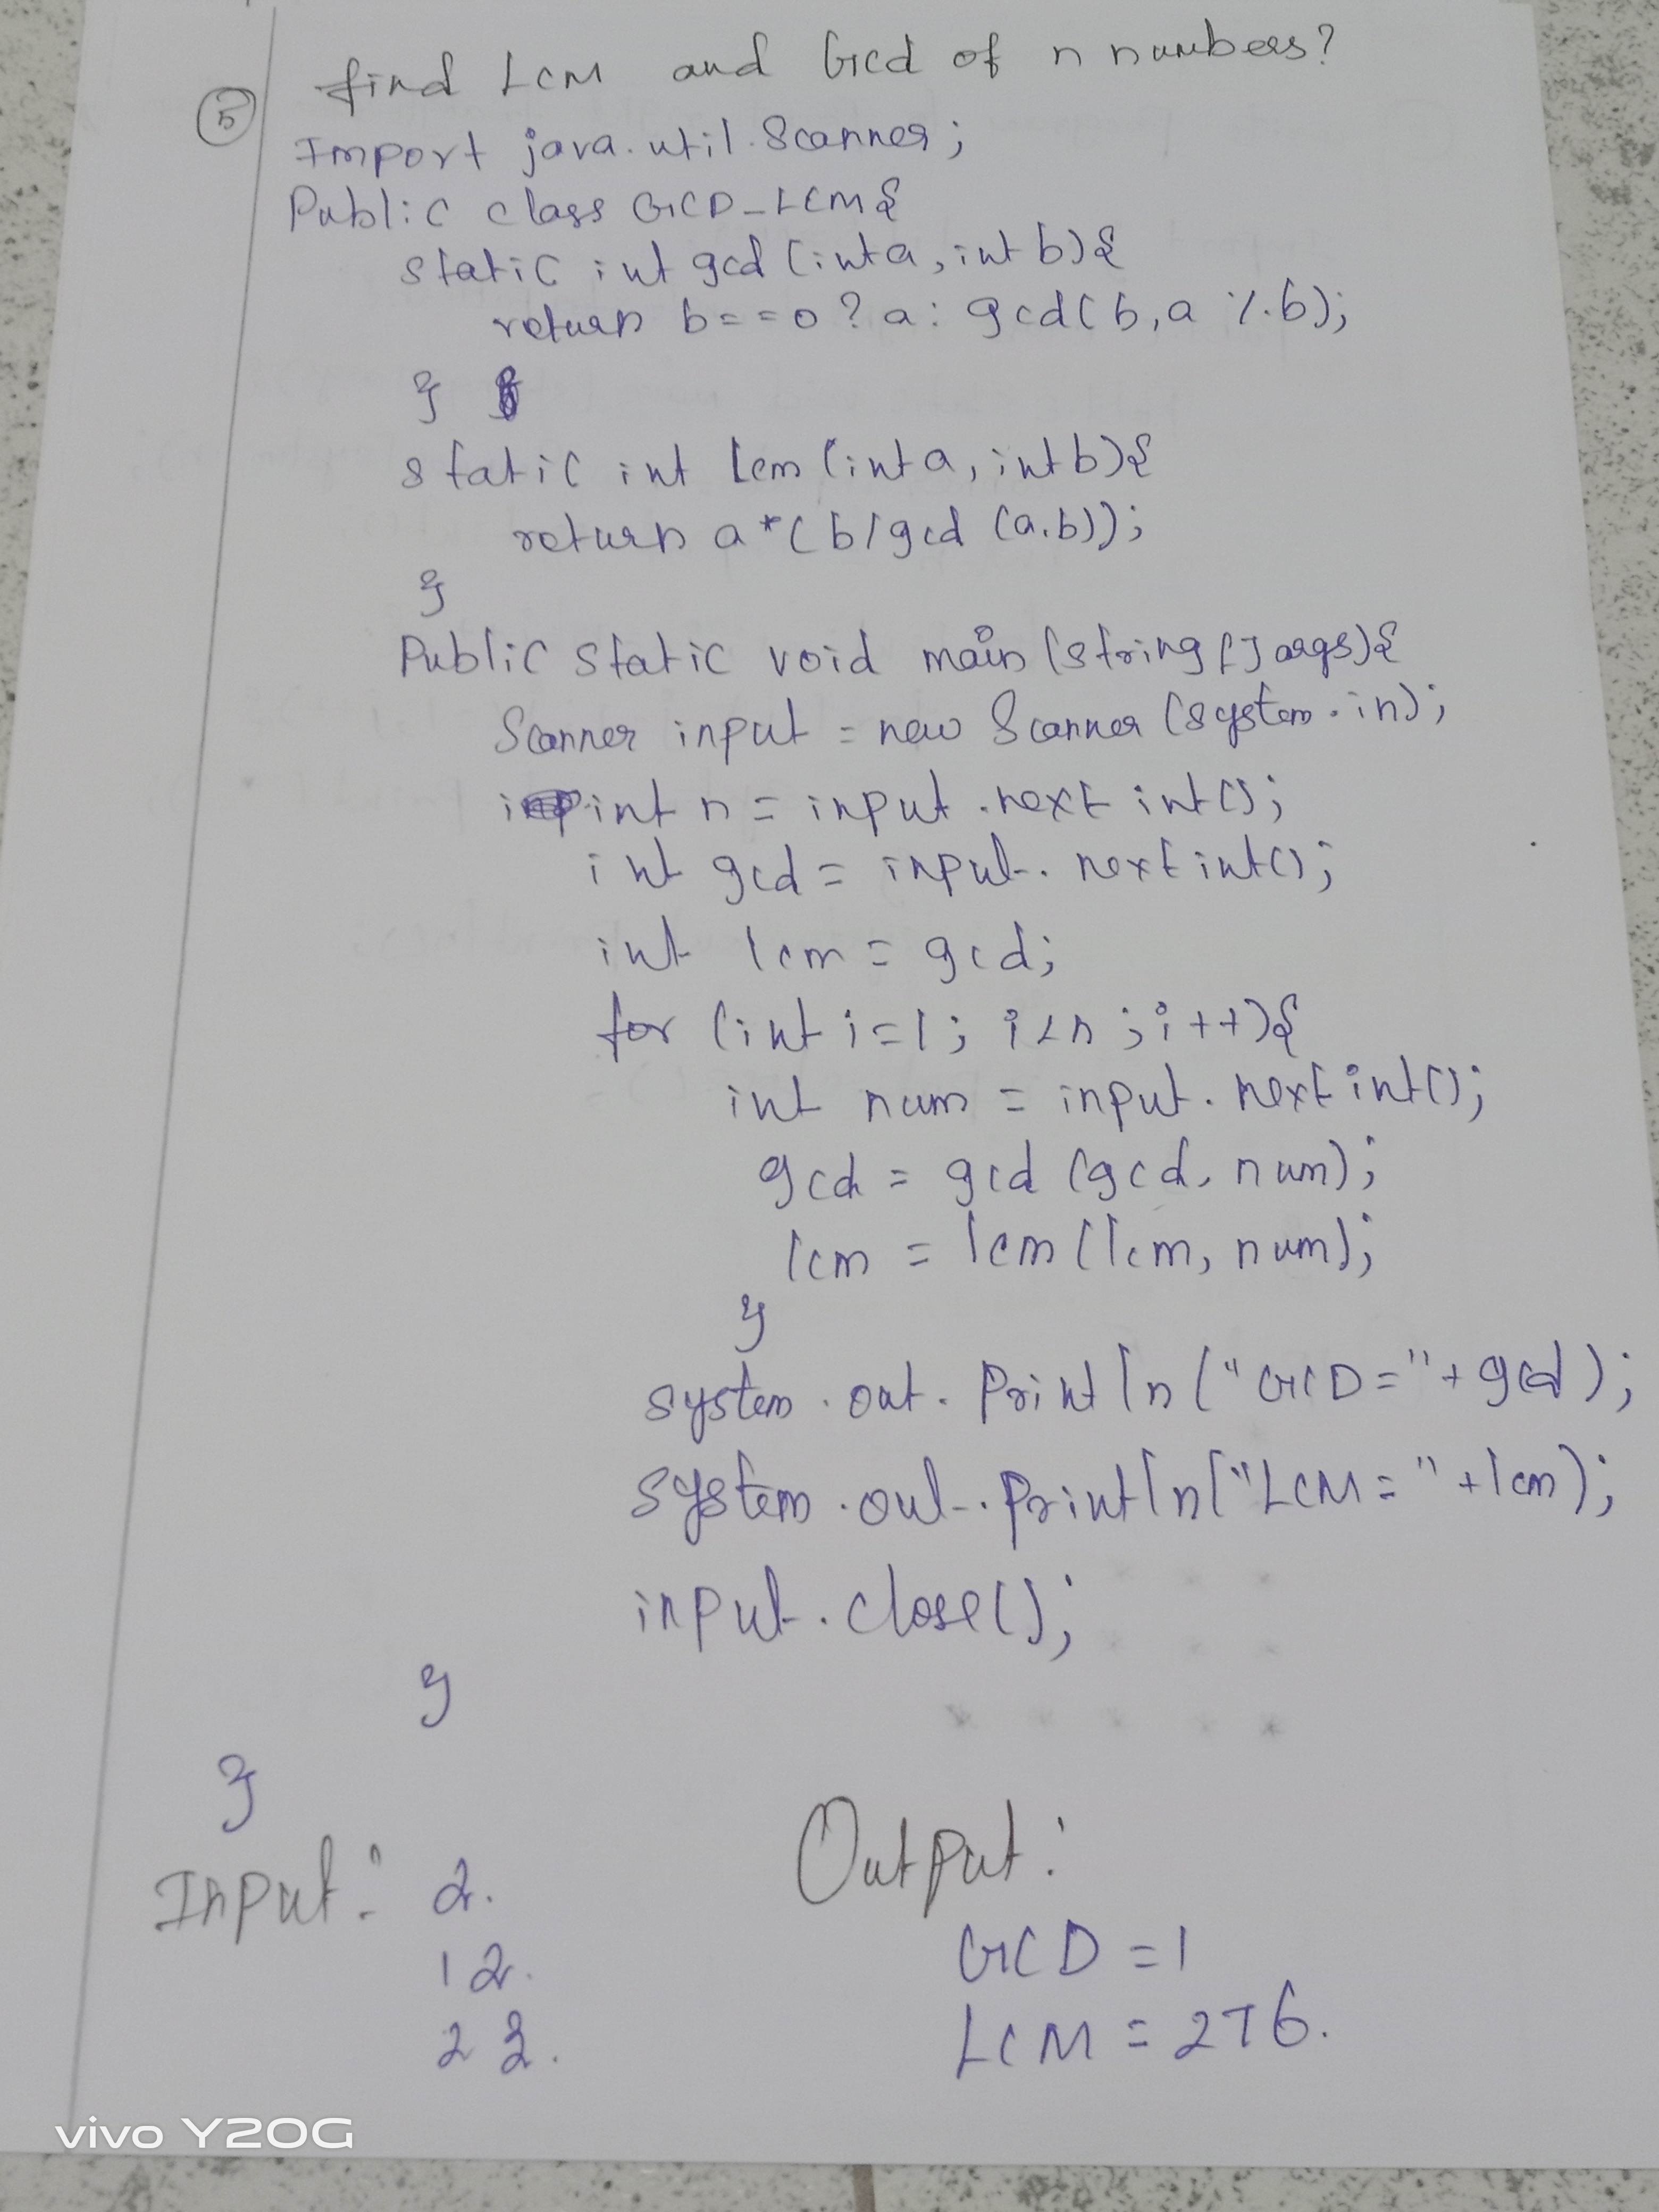 5 find LCM and Gcd of n numbers?
Import java.util.Scanner;
Public class GCD_LCM{
static int gcd (int a, int b){
return b==0?a: gcd(b,a %b);
}
static int lcm (int a, int b){
return a*(b/gcd (a.b));
}
Public static void main (string [] args){
Scanner input = new Scanner (system.in);
int n = input.next int();
int gcd = input. next int();
int lcm = gcd;
for (int i=1; i<n ; i++){
int num = input. next int();
gcd = gcd (gcd, num);
lcm = lcm (lcm, num);
}
system.out.Println ("GCD="+gcd);
system.out.Println("LCM="+lcm);
input.close();
}
}
Input: 2.
12.
23.
Output:
GCD =1
LCM = 276.
vivo Y20G